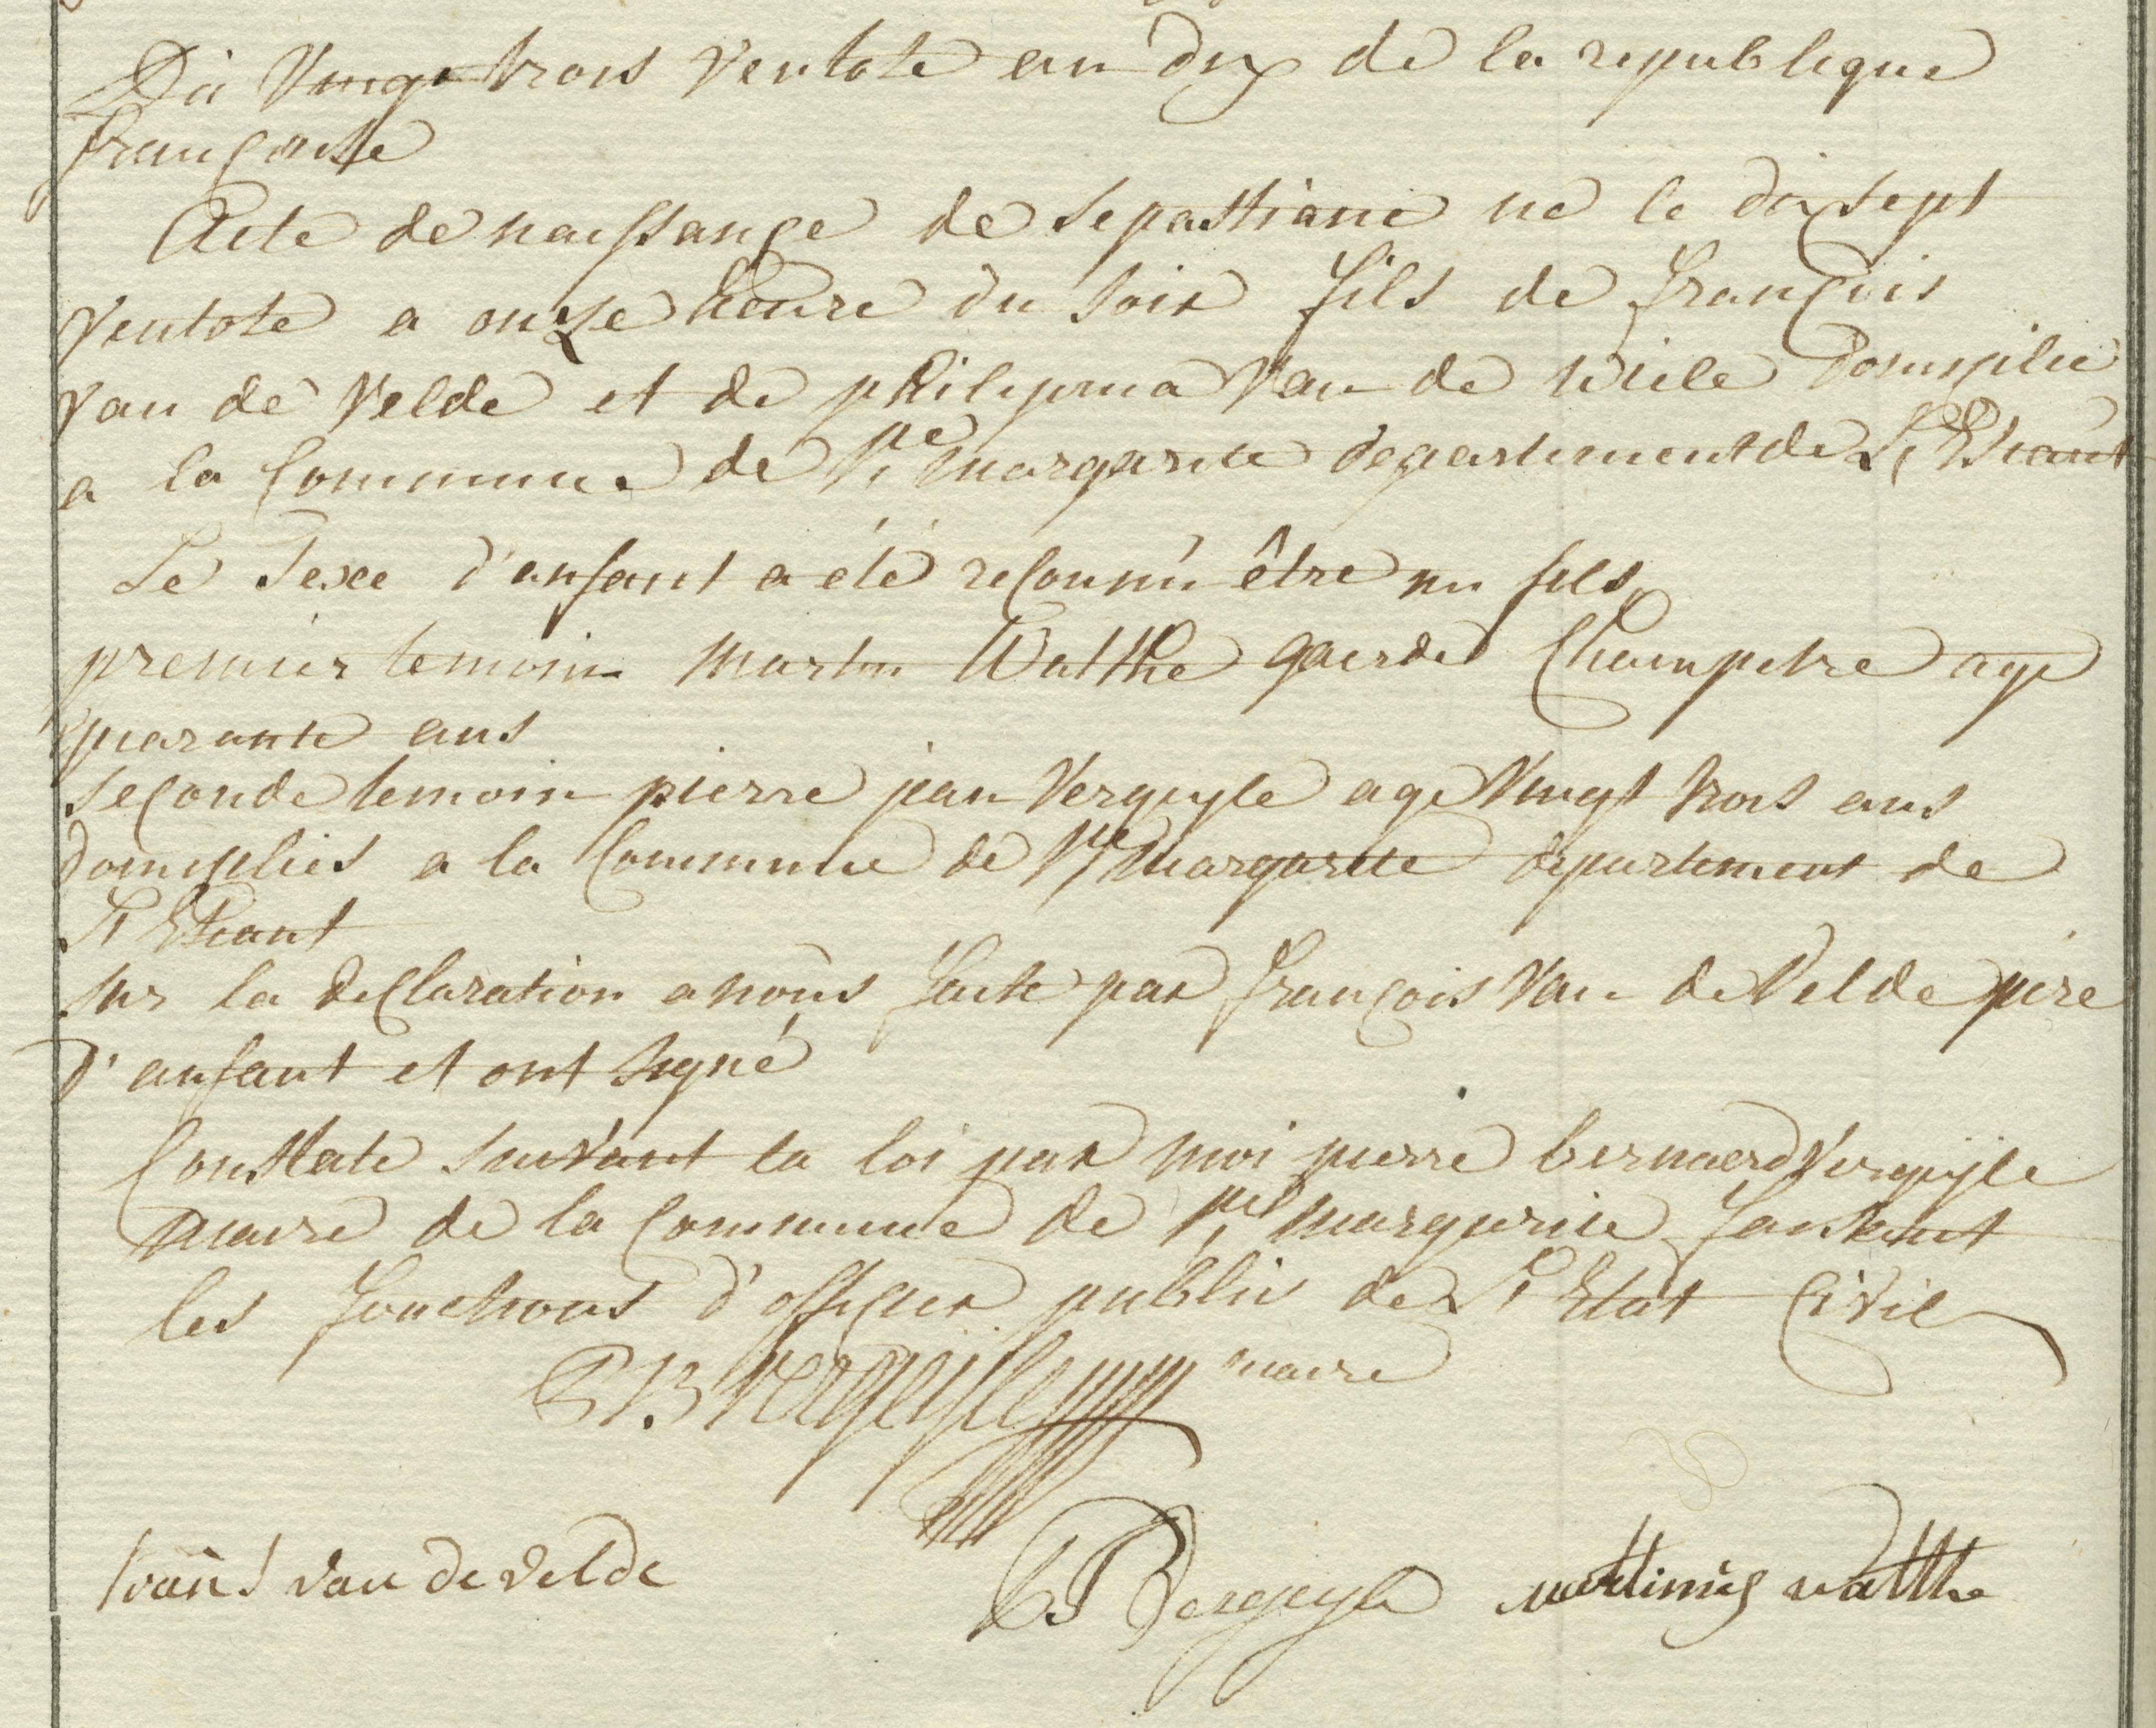 Du Vingt trois Ventose an dix de la republique
françoise
Acte de naissançe de sepastiane né le dix sept
Ventose a onze heure du soir fils de françois
Van de Velde et de philippina Van de Wiele Domiçilie
a la Commune de Ste margarite departement de L'Escaut
Le Sexe d'anfant a été reçonnú être un fils
premier temoin martin Watthe gaerde Champetre age
quarante ans
seçonde temoin pierre jean Vergeyle age Vingt trois ans
Domiçiliés a la Commune de Ste margarite departement de
L'Escaut
sur la declaration a nous faite par françois Van de Velde pere
d'anfant et ont signé
Constate suivant la loi par moi pierre bernaerd Vergeÿle
maire de la Commune de Ste margarite faisant
les fonctions d'offiçier public de L'Etat Civil
P B Vergeÿle maire
frans van de velde
P J Vergeyle martinus watthe